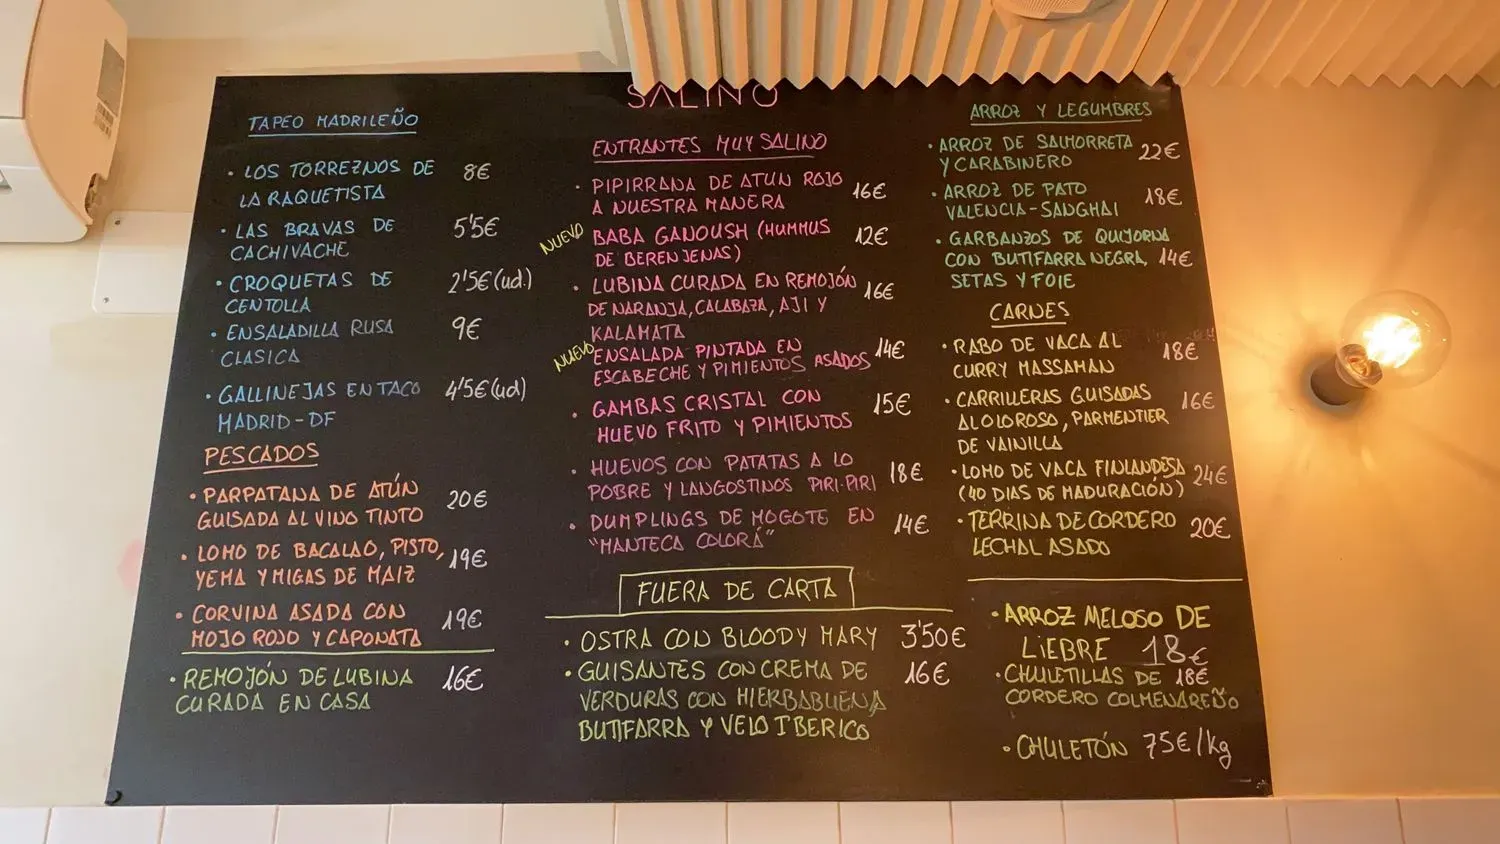 SALINO
TAPEO MADRILEÑO
• LOS TORREZNOS DE 8€
LA RAQUETISTA
• LAS BRAVAS DE 5'5€
CACHIVACHE
• CROQUETAS DE 2'5€ (ud.)
CENTOLLA
• ENSALADILLA RUSA 9€
CLASICA
• GALLINEJAS EN TACO 4'5€ (ud)
MADRID-DF
PESCADOS
• PARPATANA DE ATÚN 20€
GUISADA AL VINO TINTO
• LOMO DE BACALAO, PISTO, 19€
YEMA Y MIGAS DE MAIZ
• CORVINA ASADA CON 19€
MOJO ROJO Y CAPONATA
• REMOJÓN DE LUBINA 16€
CURADA EN CASA
ENTRANTES MUY SALINO
• PIPIRRANA DE ATUN ROJO 16€
A NUESTRA MANERA
NUEVO BABA GANOUSH (HUMMUS 12€
DE BERENJENAS)
• LUBINA CURADA EN REMOJÓN 16€
DE NARANJA, CALABAZA, AJI Y
KALAMATA
NUEVO ENSALADA PINTADA EN 14€
ESCABECHE Y PIMIENTOS ASADOS
• GAMBAS CRISTAL CON 15€
HUEVO FRITO Y PIMIENTOS
• HUEVOS CON PATATAS A LO 18€
POBRE Y LANGOSTINOS PIRI-PIRI
• DUMPLINGS DE MOGOTE EN 14€
"MANTECA COLORÁ"
FUERA DE CARTA
• OSTRA CON BLOODY MARY 3'50€
• GUISANTES CON CREMA DE 16€
VERDURAS CON HIERBABUENA
BUTIFARRA Y VELO IBERICO
ARROZ Y LEGUMBRES
• ARROZ DE SALMORRETA 22€
Y CARABINERO
• ARROZ DE PATO 18€
VALENCIA-SANGHAI
• GARBANZOS DE QUIJORNA
CON BUTIFARRA NEGRA, 14€
SETAS Y FOIE
CARNES
• RABO DE VACA AL 18€
CURRY MASSAMAN
• CARRILLERAS GUISADAS 16€
AL OLOROSO, PARMENTIER
DE VAINILLA
• LOMO DE VACA FINLANDESA 24€
(40 DIAS DE MADURACIÓN)
• TERRINA DE CORDERO 20€
LECHAL ASADO
• ARROZ MELOSO DE
LIEBRE 18€
• CHULETILLAS DE 18€
CORDERO COLMENAREÑO
• CHULETÓN 75€/Kg